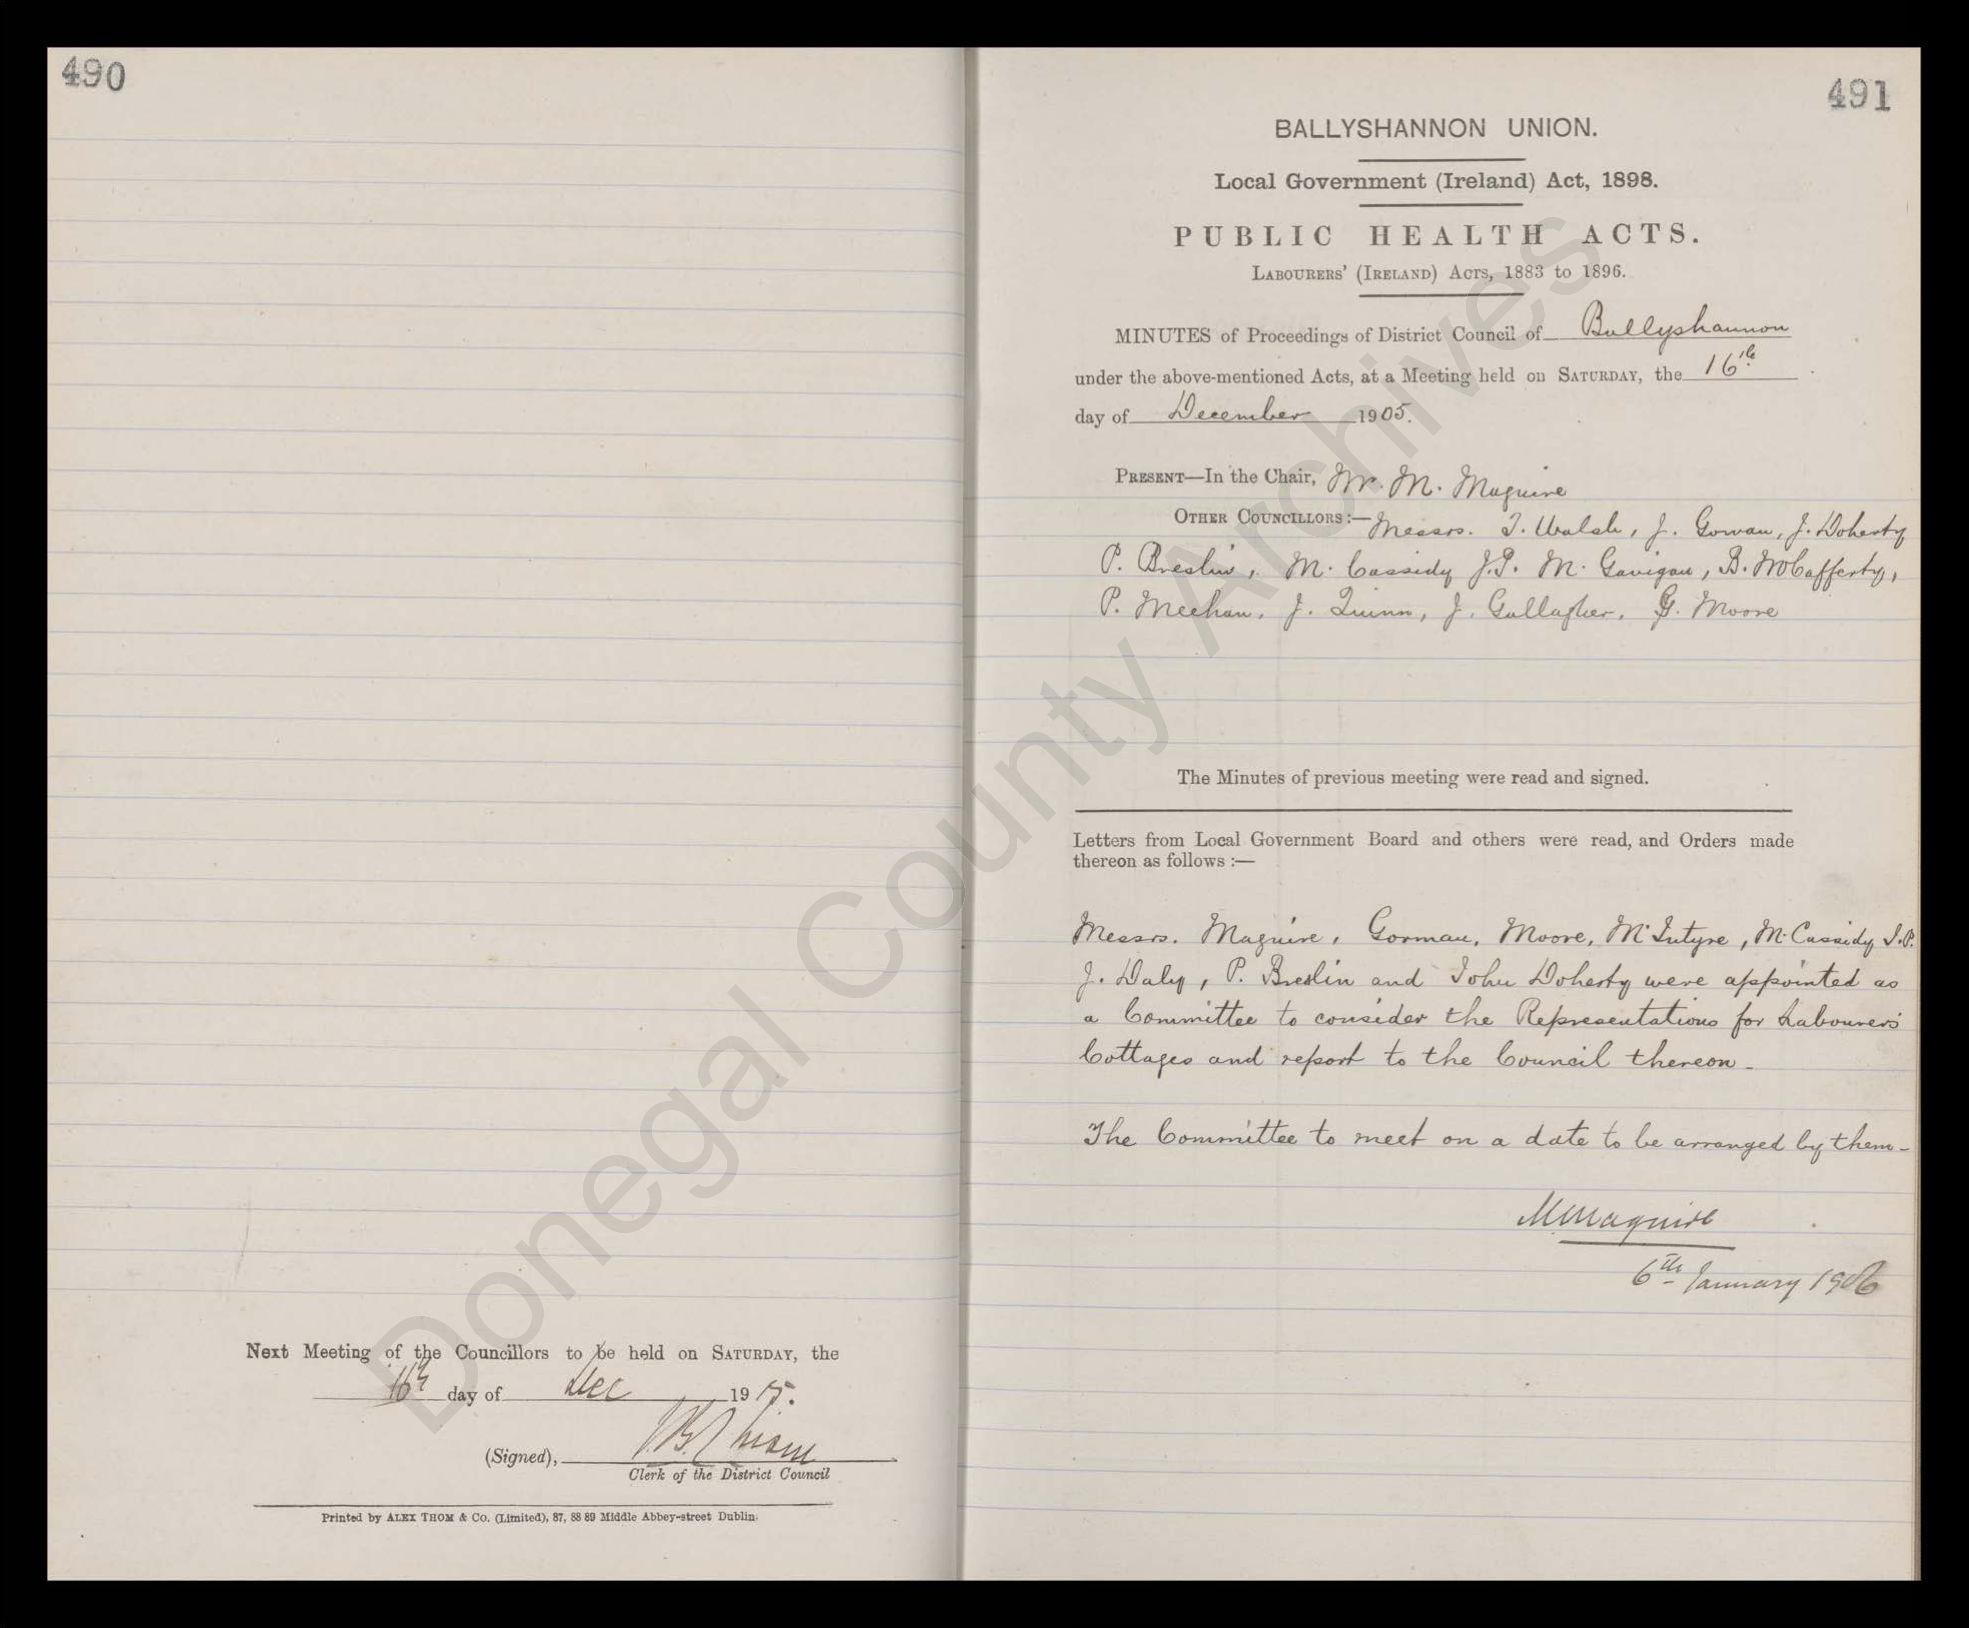 490
Next Meeting of the Councillors to be held on SATURDAY, the
16th day of Dec 1905.
(Signed),
Clerk of the District Council
Printed by ALEX THOM & Co. (Limited), 87, 88 89 Middle Abbey-street Dublin.
491
BALLYSHANNON UNION.
Local Government (Ireland) Act, 1898.
PUBLIC HEALTH ACTS.
LABOURERS' (IRELAND) ACTS, 1883 to 1896.
MINUTES of Proceedings of District Council of Ballyshannon
under the above-mentioned Acts, at a Meeting held on SATURDAY, the 16th
day of December 1905.
PRESENT—In the Chair, Mr. M. Maguire
OTHER COUNCILLORS:— Messrs. T. Walsh, J. Gowan, J. Doherty
P. Breslin, M. Cassidy J.P. M. Gavigan, B. McCafferty,
P. Meehan, J. Quinn, J. Gallagher, G. Moore
The Minutes of previous meeting were read and signed.
Letters from Local Government Board and others were read, and Orders made
thereon as follows :—
Messrs. Maguire, Gorman, Moore, McIntyre, M. Cassidy J.P.
J. Daly, P. Breslin and John Doherty were appointed as
a Committee to consider the Representations for Labourers'
Cottages and report to the Council thereon -
The Committee to meet on a date to be arranged by them -
M Maguire
6th January 1906
Donegal County Archives